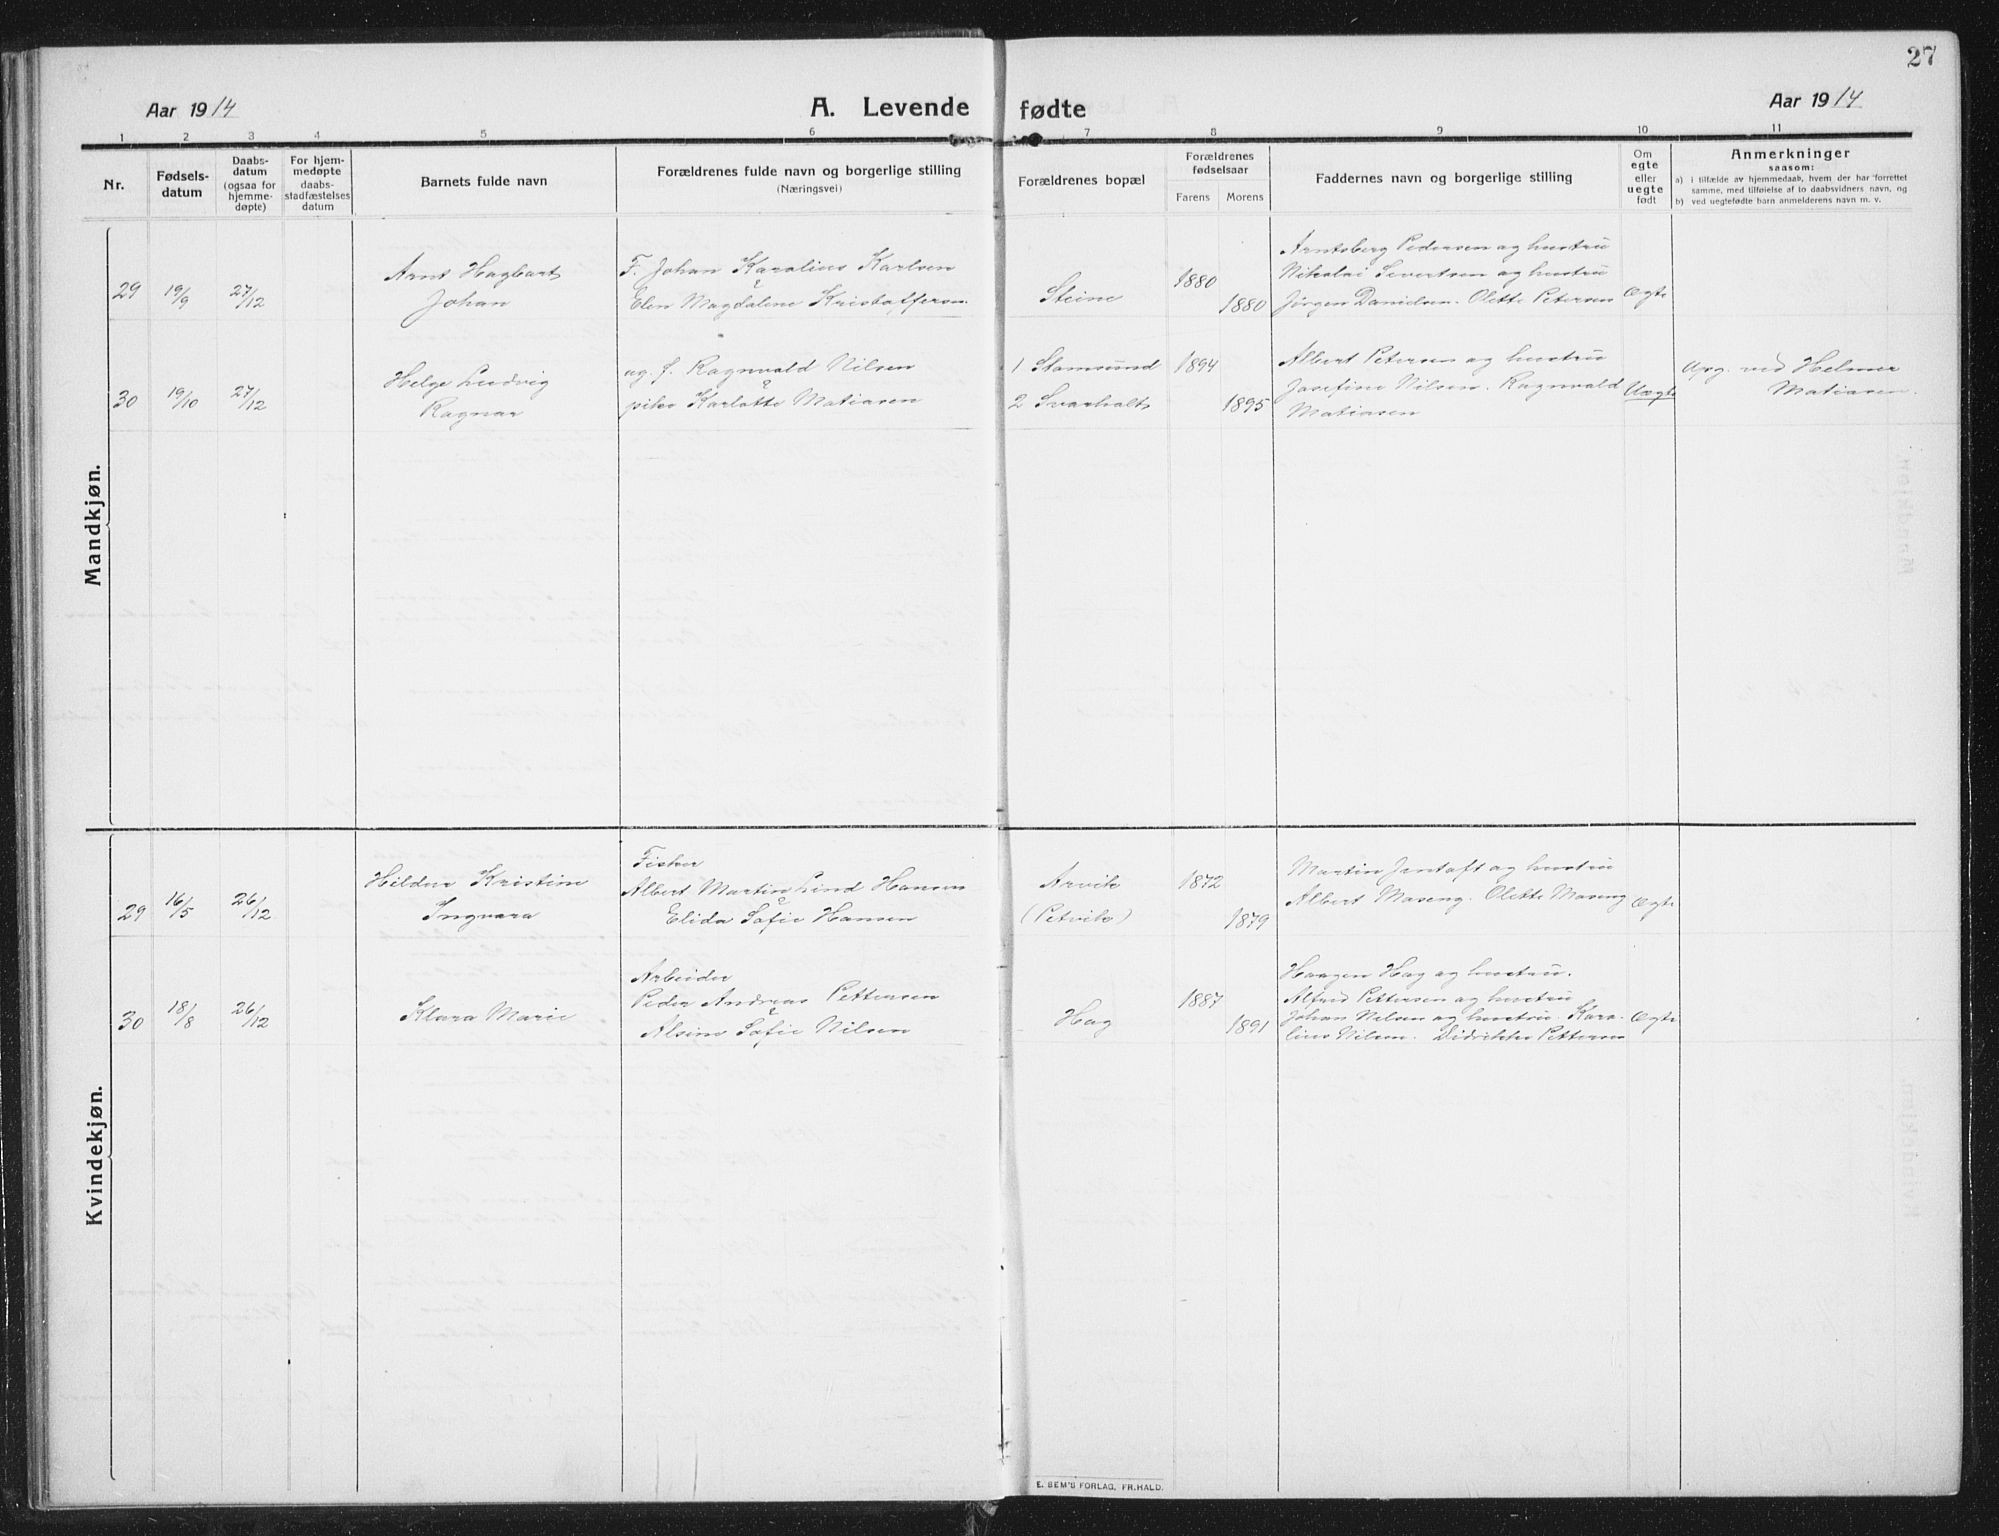 27
Aar 1914
A. Levende fødte
Aar 1914
1 2 3 4 5 6 7 8 9 10 11
Nr.
Fødsels-
datum
Daabs-
datum
(ogsaa for
hjemme-
døpte)
For hjem-
medøpte
daabs-
stadfæstelses
datum
Barnets fulde navn
Forældrenes fulde navn og borgerlige stilling
(Næringsvei)
Forældrenes bopæl
Forældrenes
fødselsaar
Farens Morens
Faddernes navn og borgerlige stilling
Om
egte
eller
uegte
født
Anmerkninger
saasom:
a) i tilfælde av hjemmedaab, hvem der har forrettet
samme, med tilføielse af to daabsvidners navn, og
b) ved uegtefødte barn anmelderens navn m. v.
Mandkjøn.
29 19/9 27/12
Arnt Hagbart
Johan
F. Johan Karolius Karlsen
&
Elen Magdalene Kristoffersen
Steine
1880
1880
Arntsberg Pedersen og hustru
Nikolai Sivertsen og hustru
Jørgen Danielsen. Olette Petersen
Ægte
30 19/10 27/12
Helge Ludvig
Ragnar
ug. f. Ragnvald Nilsen
&
pike Karlotte Matiasen
1 Stamsund
2 Svarholt
1894
1895
Albert Petersen og hustru
Josefine Nilsen. Ragnvald
Matiasen
Uægte
Opg. ved Helmer
Matiasen.
Kvindekjøn.
29 16/5 26/12
Hildur Kristine
Ingvara
Fisker
Albert Martin Lind Hansen
&
Elida Sofie Hansen
Arvik
(Petvik)
1872
1879
Martin Jentoft og hustru
Albert Maseng. Olette Maseng
Ægte
30 18/8 26/12
Klara Marie
Arbeider
Peder Andreas Pettersen
&
Alsine Sofie Nilsen
Hag
1887
1891
Haagen Hag og hustru.
Alfred Pettersen og hustru
Johan Nilsen og hustru. Karo-
lius Nilsen. Didrikke Pettersen
Ægte
E. SEM'S FORLAG, FR.HALD.